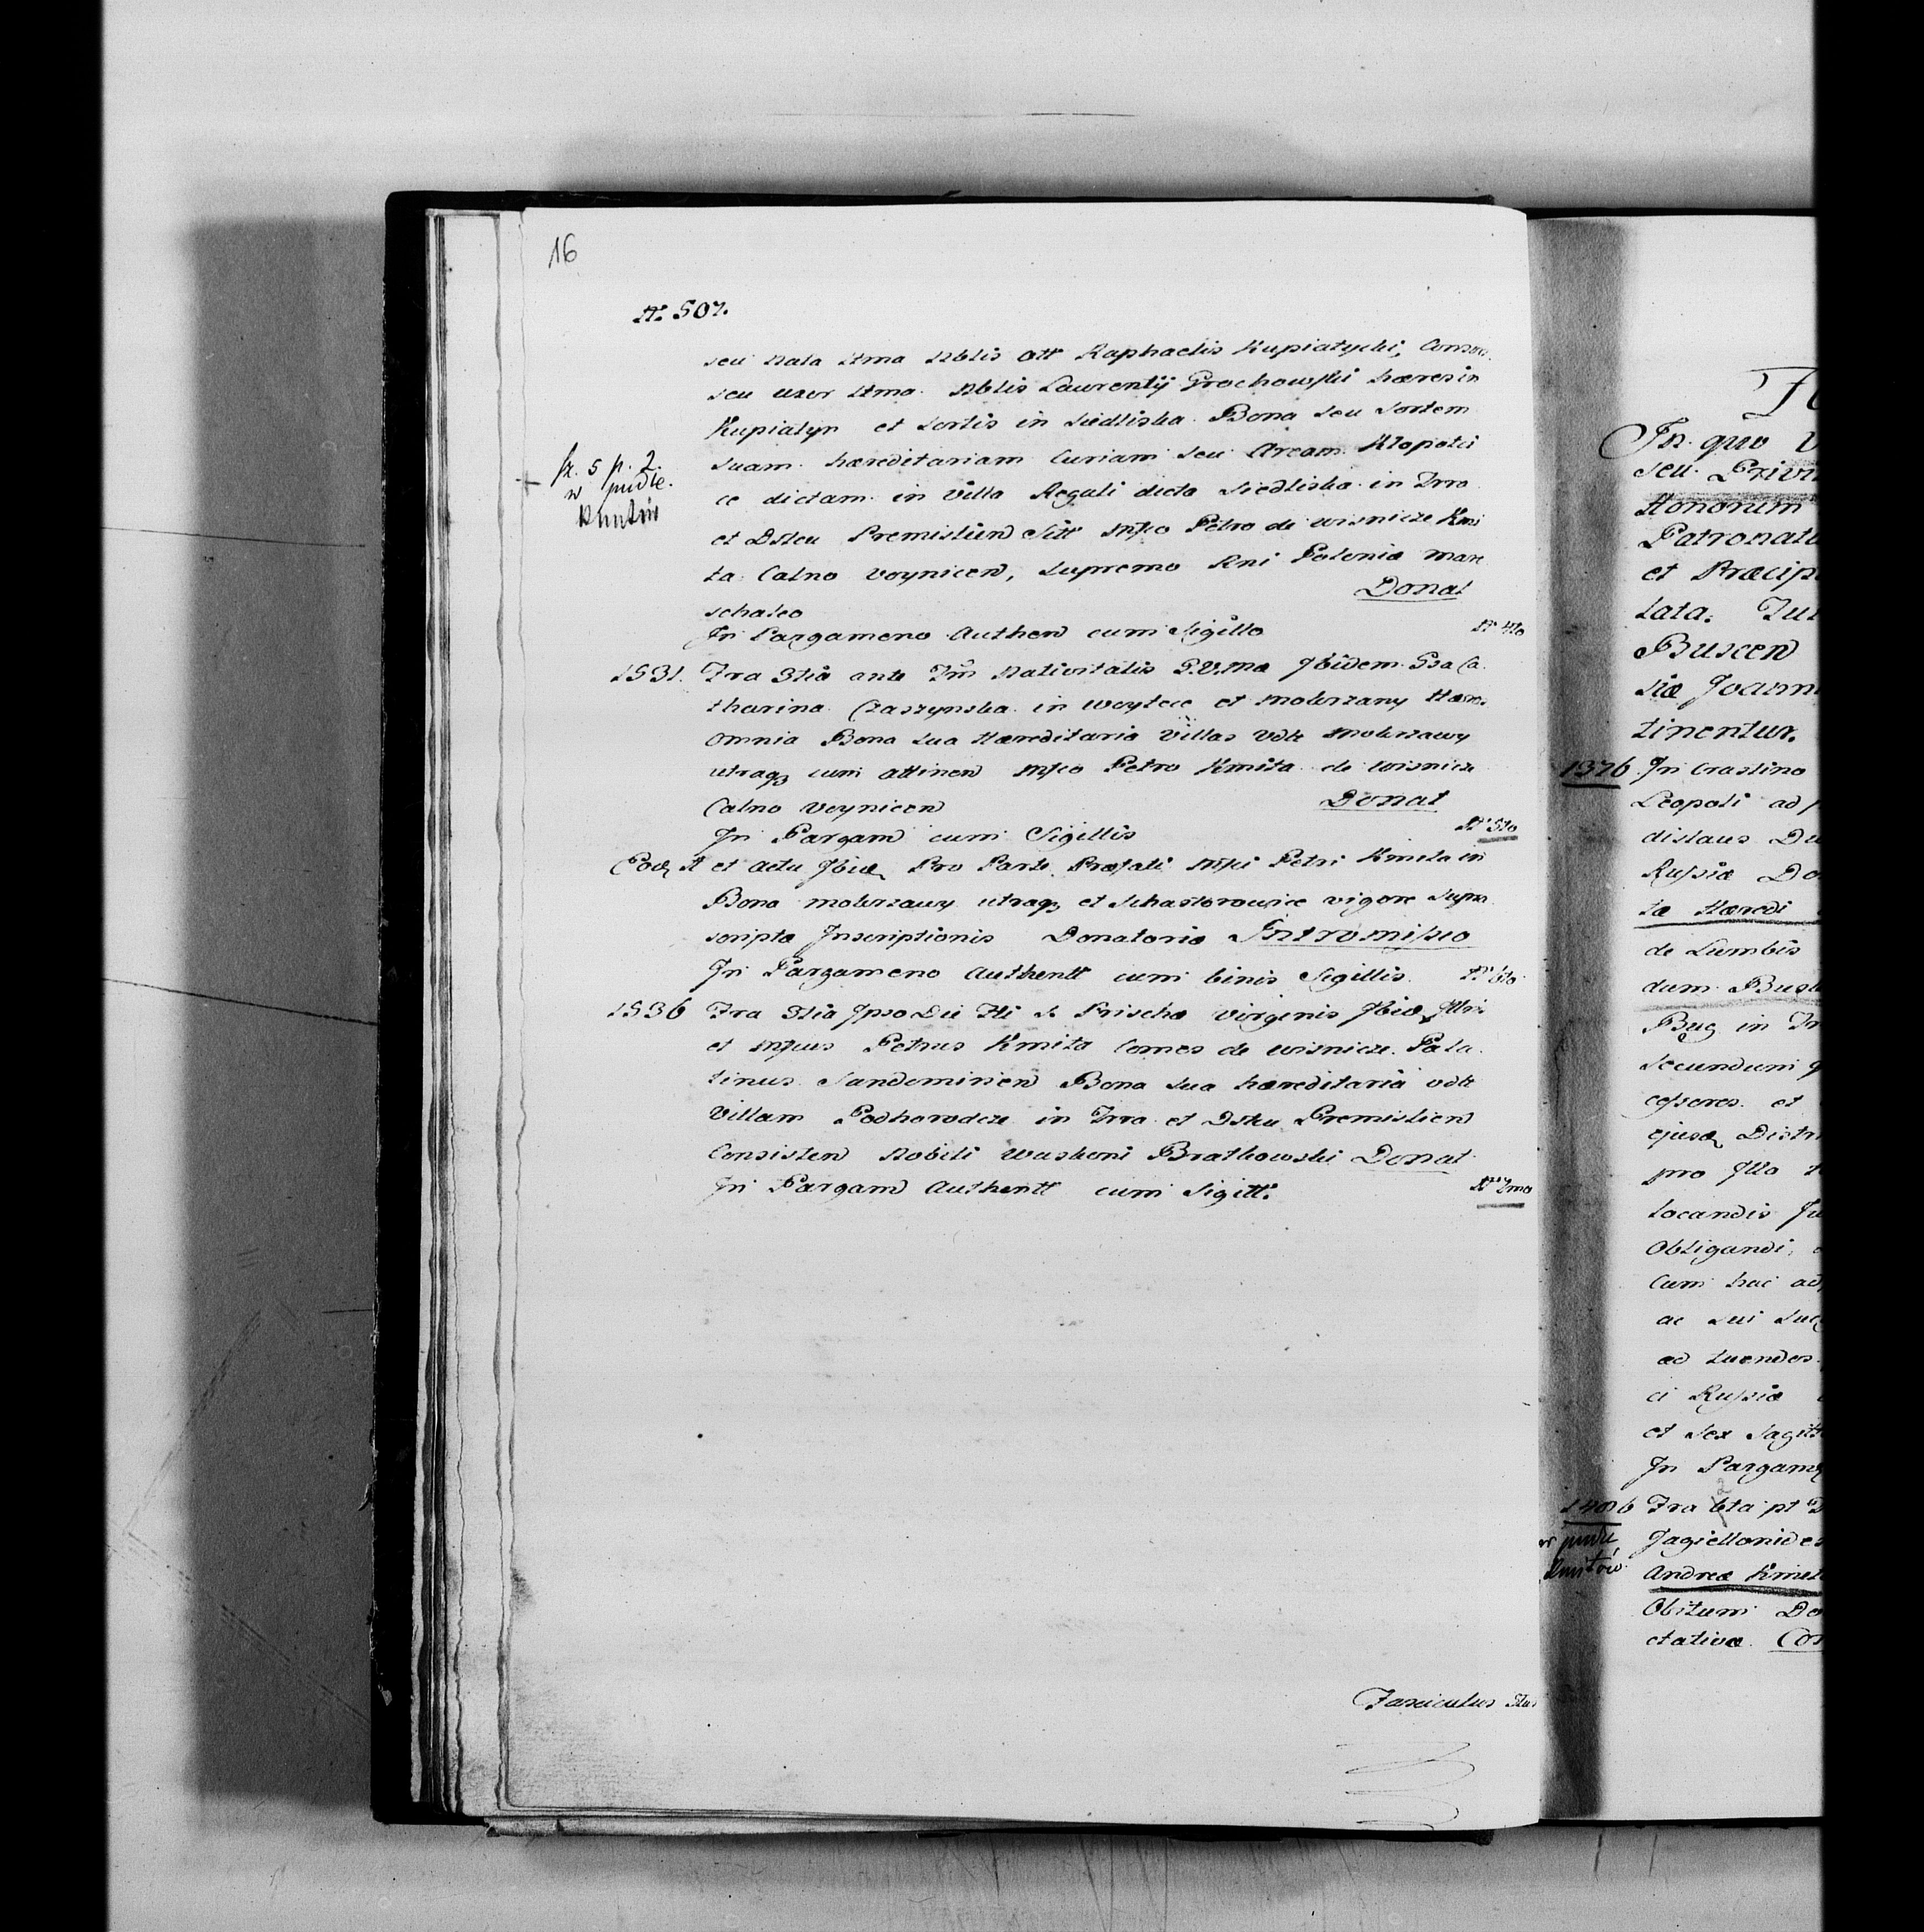 16
N. 507.
seu nata itma Nblis olt Raphaelis Kupiatycki, Consor.
seu uxor itma. Nblis Laurentij Grochowski hæres in
Kupiatyn et sortis in Siedliska. Bona seu sortem
suam hæreditariam Curiam seu Aream Klopotci
ce dictam in Villa Regali dicta Siedliska in Trra
et Dstcu Premislien Sitt Mfco Petro de Wisnicze Kmi
ta Calno Voynicen, Supremo Rni Poloniæ Mare
schalco Donat
In Pargameno Authen cum Sigillo Nº 4to
fz. 5 p. 2.
w pudle.
Kmitów
1531. Fra 3tia ante Fm Nativitatis B.V.Mæ Ibidem Gsa Ca
tharina Czaszynska in Woytcce et Mokrzany Hæres
Omnia Bona sua Hæreditaria Villas vdlt Mokrzany
utraqz cum attinen Mfco Petro Kmita de Wisnicze
Calno Voynicen Donat
In Pargam cum Sigillis Nº 5to
Eod A et Actu Ibid Pro Parte Præfati Mfci Petri Kmita in
Bona Mokrzany utraqz et vigore supra
scriptæ Inscriptionis Donatoriæ Intromissio
In Pargameno Authentt cum binis Sigillis. Nº 6to
1536 Fra 3tia Ipso Die Fti S. Priscæ Virginis Ibid Illris
et Mfcus Petrus Kmita Comes de Wisnicze. Pala
tinus Sandomirien Bona sua hæreditaria vdlt
Villam Podhorodcze in Trra et Dstcu Premislien
Consisten Nobili Waskoni Bratkowski Donat
In Pargam Authentt cum Sigill. Nº 7mo
Fasciculus
In quo
seu Privi
Honorum
Patronatu
et Præcip
lata.
Buscen
siæ Joann
tinentur.
1376 In Crastino
Leopoli ad
dislaus Du
Russiæ Do
tæ Hæredi
de Lumbis
dum Busk
Bug in
Secundum
cessores et
ejusd Distri
pro Illo
Locandis Ju
Obligandi,
Cum hac ad
ac sui Suc
ad tuendos
ci Russiæ
et sex Sagitt
In Pargame
1406 Fra 6ta pt
w pudle
Kmitów
Jagiellonid
Andreæ Kmit
Obitum De
ctativæ Con